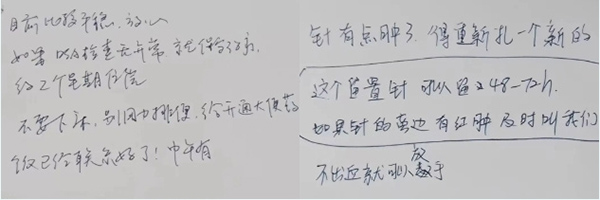 目前比较平稳,放心
如果DSA检查无异常 就保守治疗,
约2个星期住院
不要下床,别用力排便,给开通大便药
饭已给联系好了!中午有
针有点肿了,得重新扎一个新的
这个留置针 可以留置48-72h.
如果针的旁边有红肿 及时叫我们
不出血就可以放手